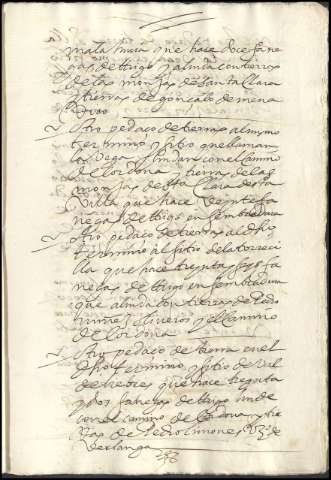 mata [...] que hace doce fane
gas de trigo y alinda con tierras
de las monjas de santa clara
y tierras de gonçalo de mena
Otro pedaço de tierras al mismo
termino y sitio que llaman
la Vega y linda con el camino
de cordova y tierra de las
monjas de sta clara desta
villa que hace veynte fa
negas de trigo en sembradura
Otro pedaço de tierras al dho
termino al sitio de la torreci
lla que hace treynta y seys fa
negas de trigo en sembradura
que alinda con tierras de Pedro
nuñez y el camino
de Cordova
Otro pedaço de tierra en el
dho termino y sitio de
que hace treynta
y dos fanegas de trigo linde
con el camino de Cordova y tie
rras de Pedro ximenez vzº de
Verlanga